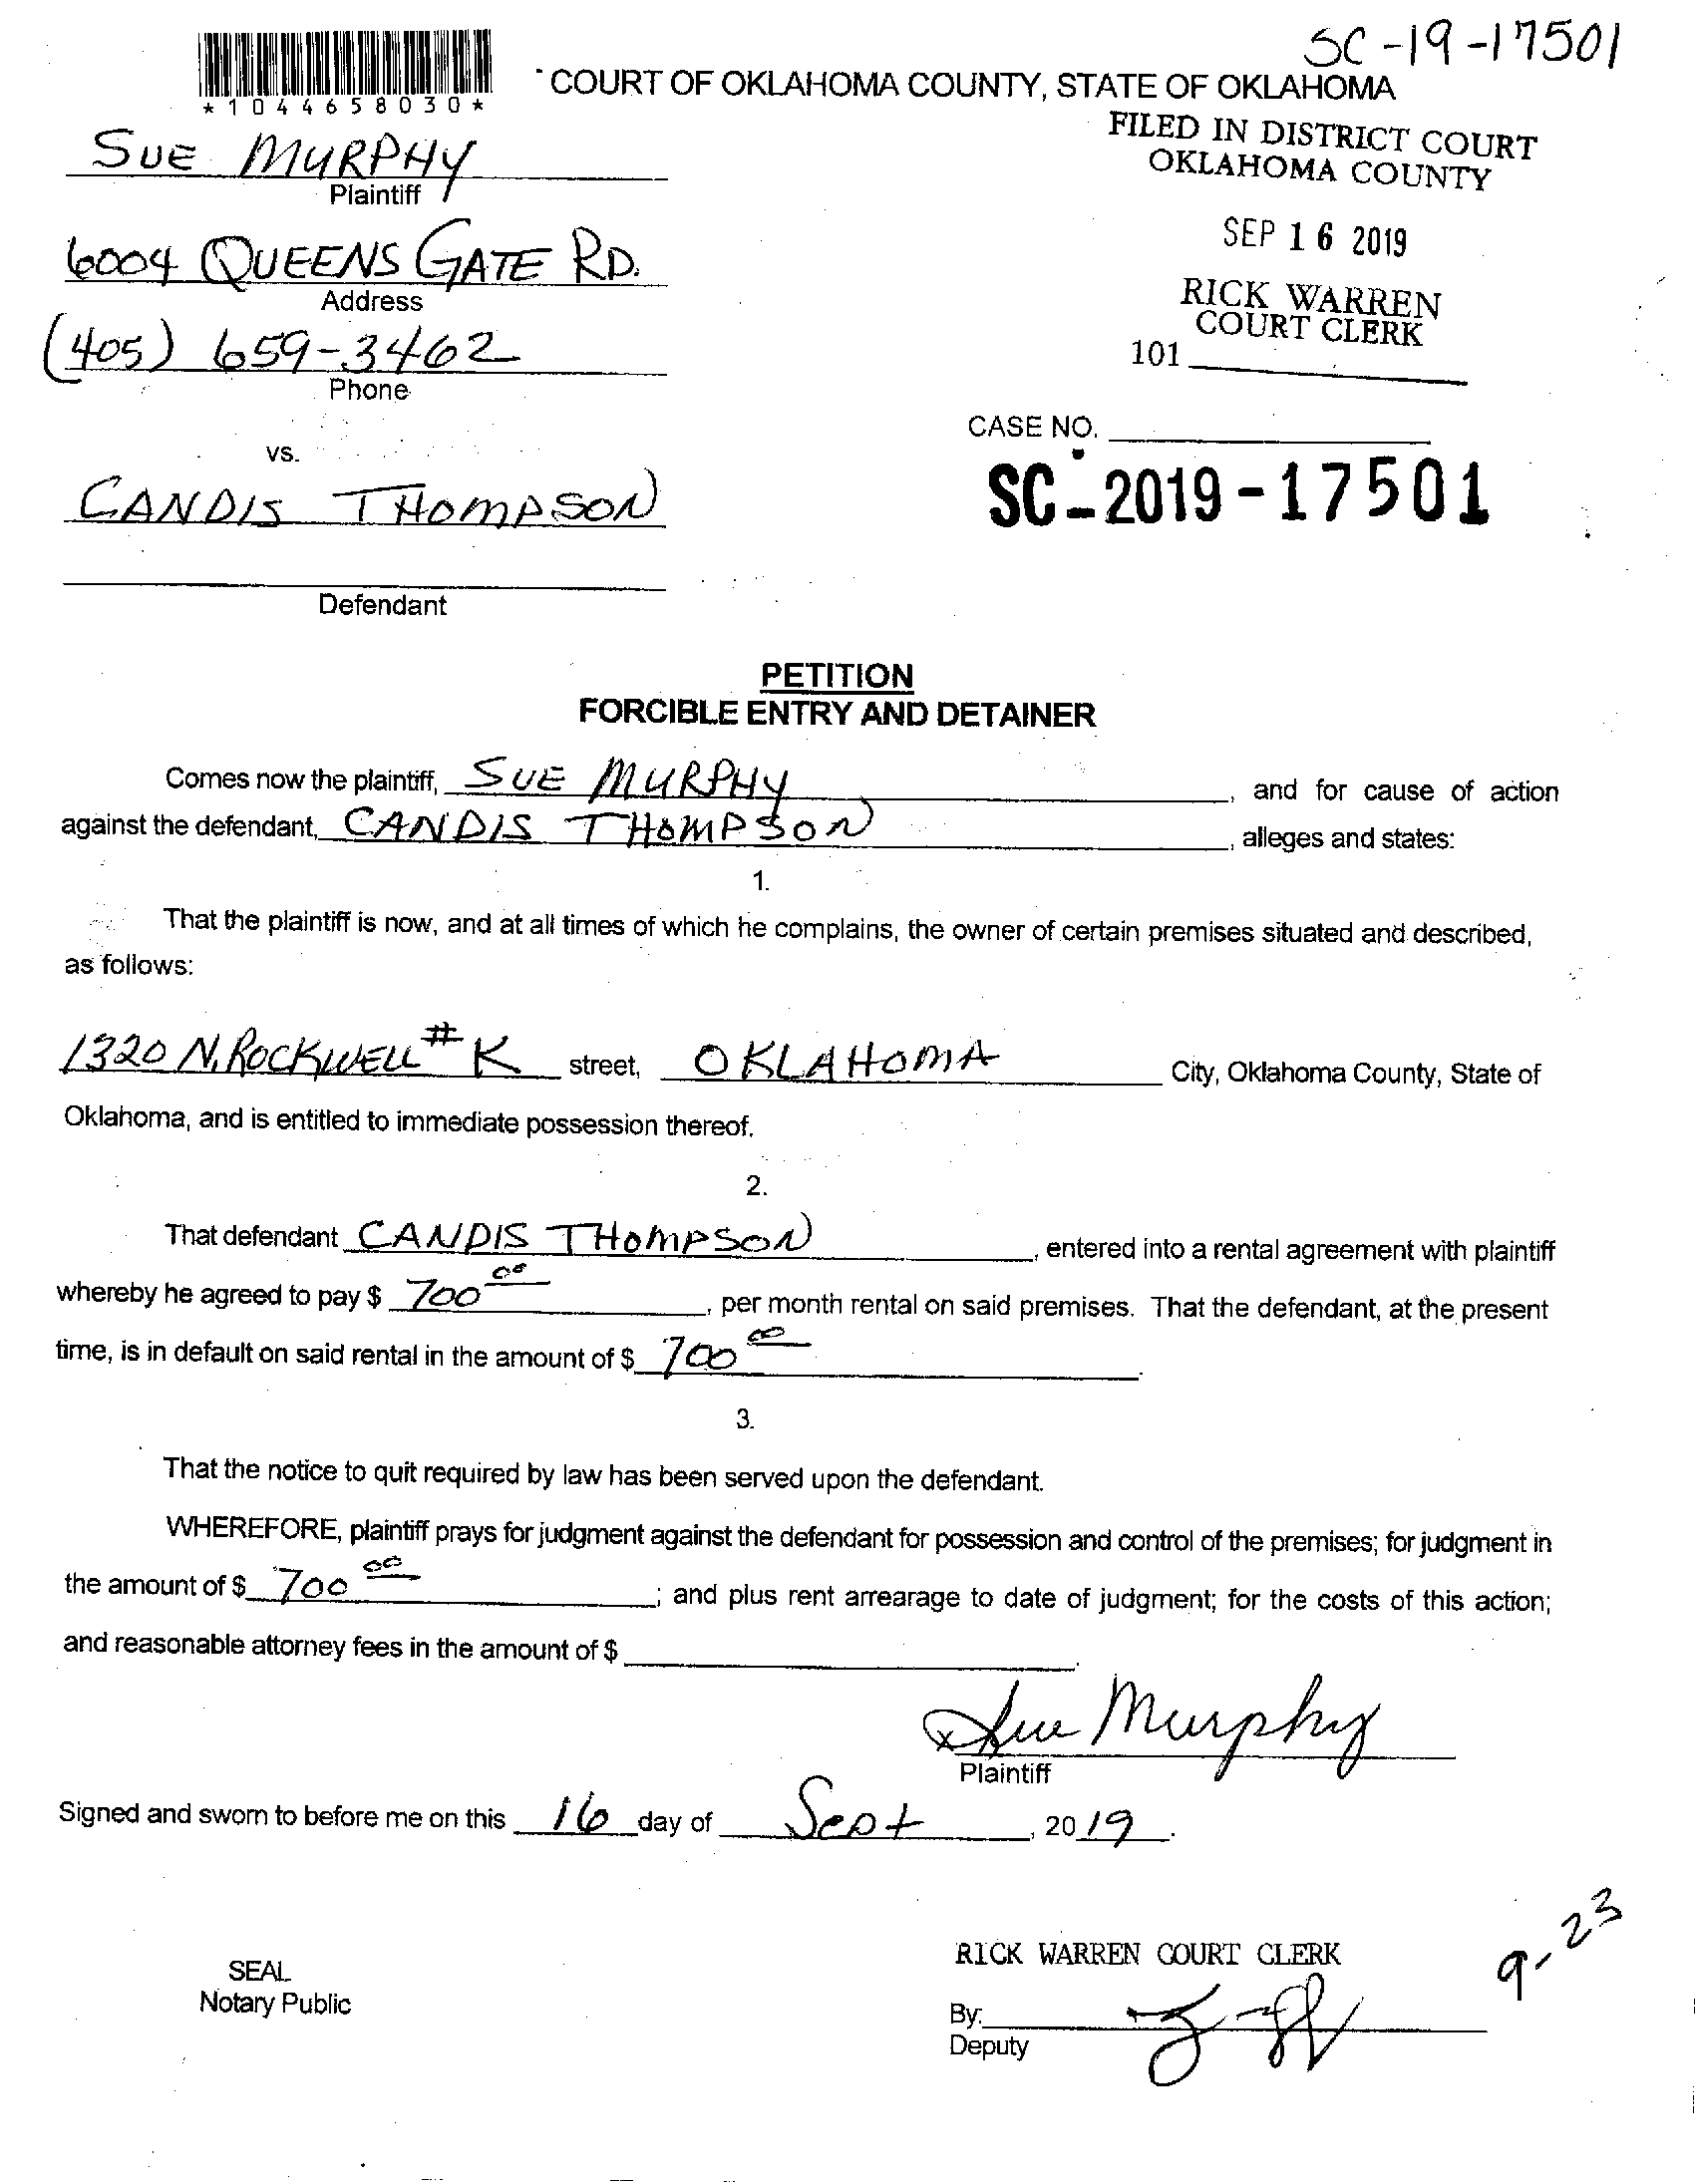 SC-19-17501
*1044658030*
COURT OF OKLAHOMA COUNTY, STATE OF OKLAHOMA
FILED IN DISTRICT COURT
OKLAHOMA COUNTY
SUE MURPHY
Plaintiff
SEP 16 2019
6004 QUEENS GATE RD.
Address
RICK WARREN
COURT CLERK
(405) 659-3462
101
Phone
CASE NO.
vs.
SC-2019-17501
CANDIS THOMPSON
Defendant
PETITION
FORCIBLE ENTRY AND DETAINER
Comes now the plaintiff, SUE MURPHY, and for cause of action
against the defendant, CANDIS THOMPSON, alleges and states:
1.
That the plaintiff is now, and at all times of which he complains, the owner of certain premises situated and described,
as follows:
1320 N. ROCKWELL # K street, OKLAHOMA City, Oklahoma County, State of
Oklahoma, and is entitled to immediate possession thereof.
2.
That defendant CANDIS THOMPSON, entered into a rental agreement with plaintiff
whereby he agreed to pay $ 700 00, per month rental on said premises. That the defendant, at the present
time, is in default on said rental in the amount of $ 700 00.
3.
That the notice to quit required by law has been served upon the defendant.
WHEREFORE, plaintiff prays for judgment against the defendant for possession and control of the premises; for judgment in
the amount of $ 700 00; and plus rent arrearage to date of judgment; for the costs of this action;
and reasonable attorney fees in the amount of $ .
x Sue Murphy
Plaintiff
Signed and sworn to before me on this 16 day of Sept, 2019.
9-23
RICK WARREN COURT CLERK
SEAL
Notary Public
By:
Deputy